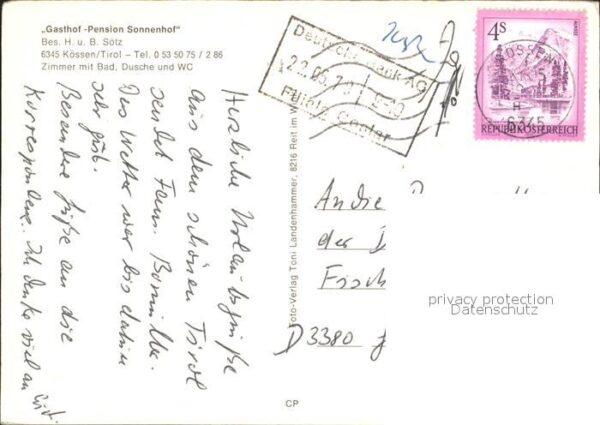 „Gasthof-Pension Sonnenhof"
Bes. H. u. B. Sötz
6345 Kössen/Tirol – Tel. 0 53 50 75 / 2 86
Zimmer mit Bad, Dusche und WC
Herzliche Urlaubsgrüße
aus dem schönen Tirol
sendet Fam.
Das Wetter war bis dahin
sehr gut.
Besondere Grüße an die
Korrespondenz. Ich denke viel an
Foto-Verlag Toni Landenhammer, 8216 Reit im W
CP
Deutsche Bank AG
22.05.7
Filiale Goslar
4S
REPUBLIK ÖSTERREICH
6345
An die
der
Fisch
D 3380
privacy protection
Datenschutz